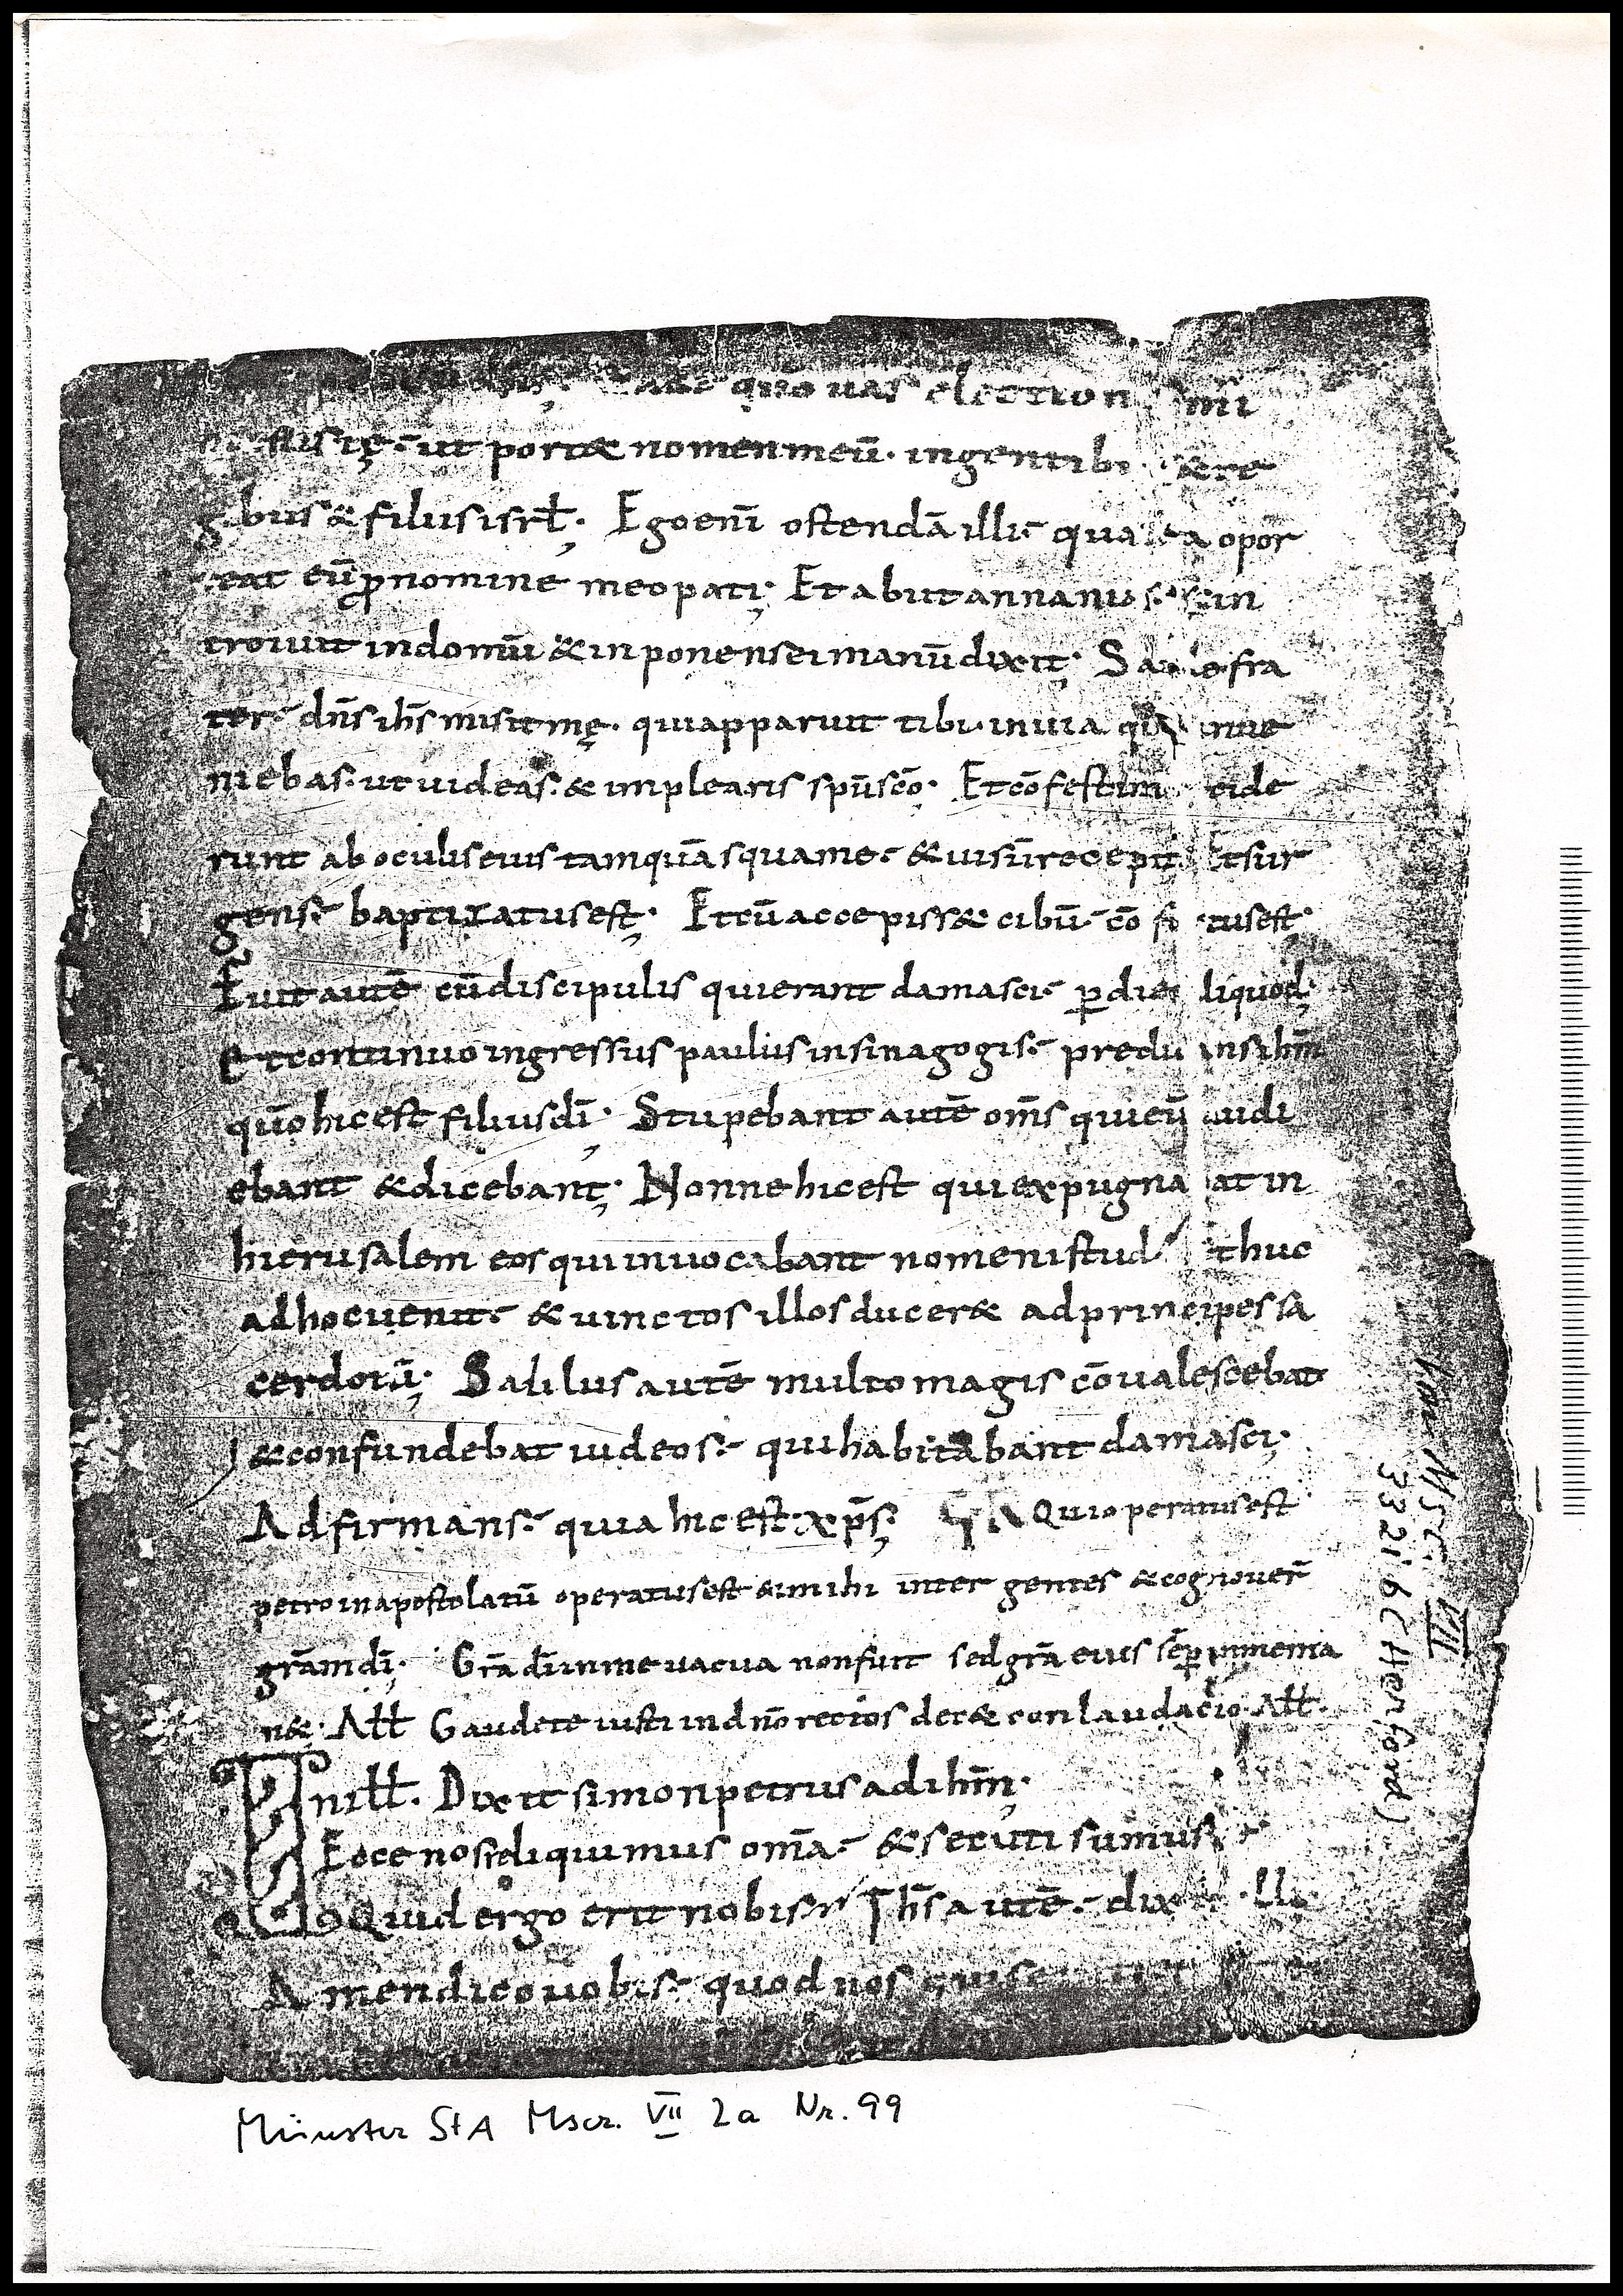 quō uas election mi
hi est iste·̄ ut port& nomen meū· in gentib; & re
gibus & filiis isrł; Ego enī ostendā illi·̄ quanta opor
teat eū ꝓ nomine meo pati; Et abiit annanias·̄ & in
troiuit in domū & inponens ei manū dixit; Saule fra
ter·̄ dn̄s ih̄s misit mę· qui apparuit tibi· in uia qua inue
niebas· ut uideas· & implearis sp̄u sc̄o· Et cōfestim ceciderunt
runt ab oculis eius tamquā squame·̄ & uisū recepit Et sur
gens·̄ baptizatus est; Et cū accepiss& cibū·̄ cōfortatus est;
Fuit autē cū discipulis qui erant damasci·̄ ꝑ dies aliquod;
Et continuo ingressus paulus in sinagogis·̄ predicans ihm̄
qūo hic est filius dī; Stupebant autē om̄s qui eū audi
ebant & dicebant; Nonne hic est qui expugnabat in
hierusalem eos qui inuocabant nomen istud & huc
ad hoc uenit·̄ & uinctos illos ducer& ad principes sa
cerdotū; Saulus autē multo magis cōualescebat
& confundebat iudeos·̄ qui habitabant damasci;
Adfirmans·̄ quia hic est xp̄s; GRA Qui operatus est
petro in apostolatū operatus est & mihi inter gentes & cognouer̄
grām dī; Grā dī in me uacua non fuit sed grā eius semꝑ in me ma
n&; Ałł Gaudete iusti in dn̄o rectos dec& conlaudacio· Ałł·
In illł· Dixit simon petrus ad ihm̄;
Ecce nos reliquimus om̄a·̄ & secuti sumus te
Quid ergo erit nobis Ih̄s autē·̄ dixit illis
Amen dico uobis·̄ quod uos
Münster StA Mscr. VII 2a Nr. 99
von Mscr. VII
3321 b (Herford)